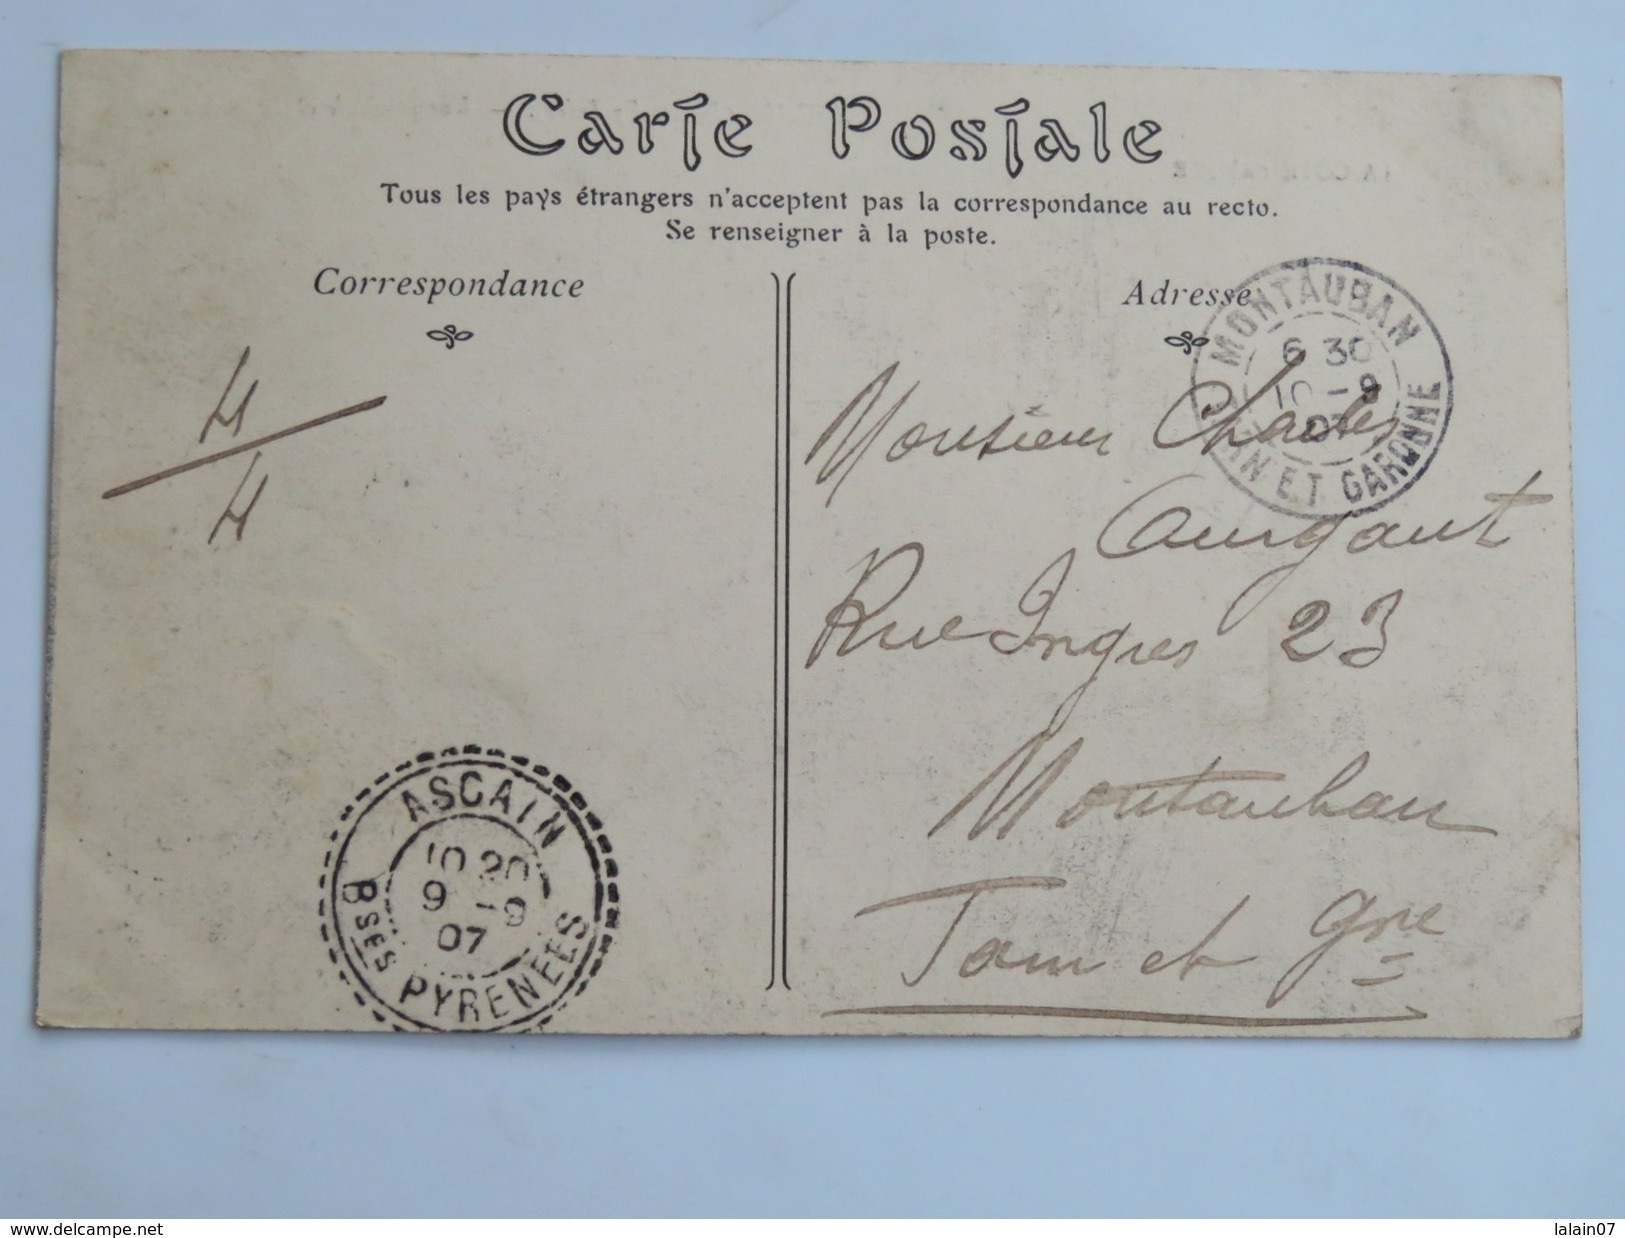 Carte Postale
Tous les pays étrangers n'acceptent pas la correspondance au recto.
Se renseigner à la poste.
Correspondance
Adresse
4
4
MONTAUBAN
6 30
10 - 9
07
TARN ET GARONNE
Monsieur Charles
Aurgaut
Rue Ingres 23
Montauban
Tarn et Gne
ASCAIN
10 20
9 - 9
07
Bses PYRENEES
www.delcampe.net
lalain07